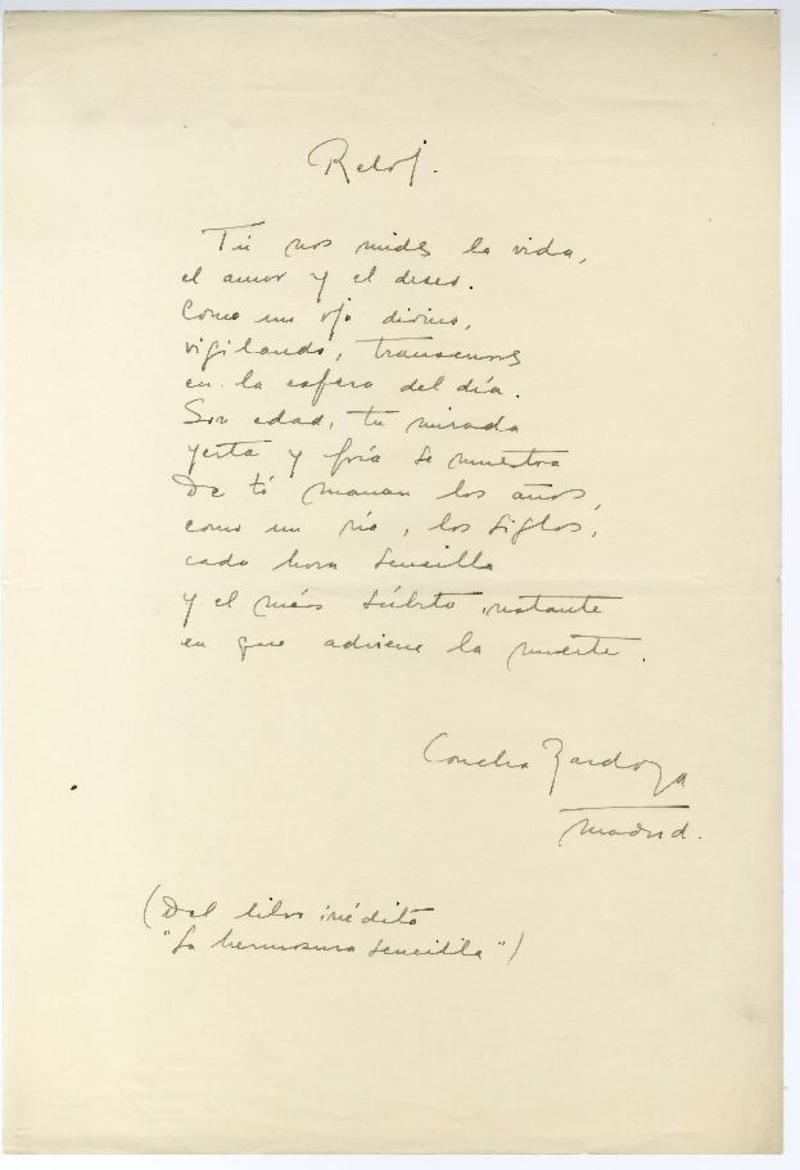 Reloj.
Tú nos mides la vida,
el amor y el deseo.
Como un ojo divino,
vigilando, transcurres
en la esfera del día.
Sin edad, tu mirada
yerta y fría se muestra
De ti manan los años,
como un río, los siglos,
cada hora sencilla
y el más súbito instante
en que adviene la muerte.
Concha Zardoya
Madrid.
(Del libro inédito
"La hermosura sencilla")